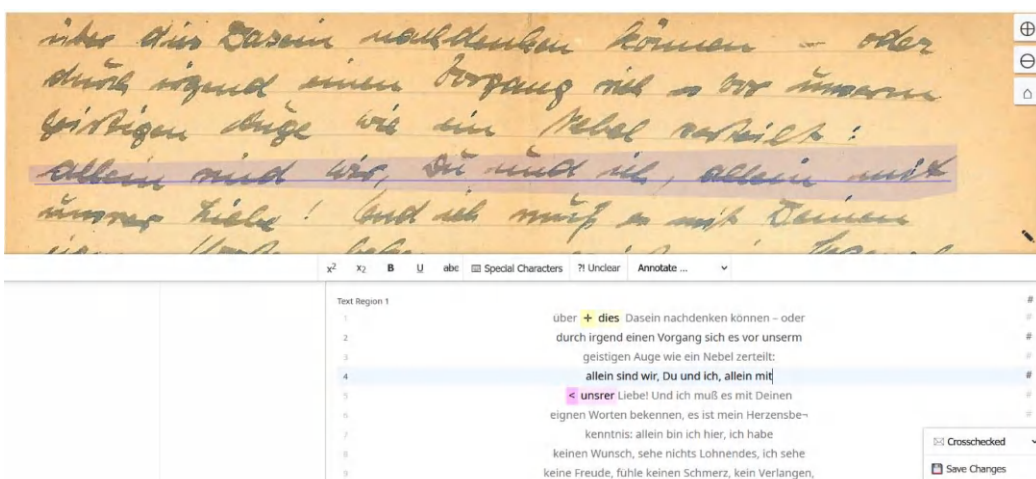 über dies Dasein nachdenken können – oder
durch irgend einen Vorgang sich es vor unserm
geistigen Auge wie ein Nebel zerteilt:
allein sind wir, Du und ich, allein mit
unsrer Liebe! Und ich muß es mit Deinen
eignen Worten
x² x₂ B U abc Special Characters ?! Unclear Annotate ...
Text Region 1 #
1 über + dies Dasein nachdenken können – oder #
2 durch irgend einen Vorgang sich es vor unserm #
3 geistigen Auge wie ein Nebel zerteilt: #
4 allein sind wir, Du und ich, allein mit #
5 < unsrer Liebe! Und ich muß es mit Deinen #
6 eignen Worten bekennen, es ist mein Herzensbe¬ #
7 kenntnis: allein bin ich hier, ich habe
8 keinen Wunsch, sehe nichts Lohnendes, ich sehe
9 keine Freude, fühle keinen Schmerz, kein Verlangen,
Crosschecked
Save Changes